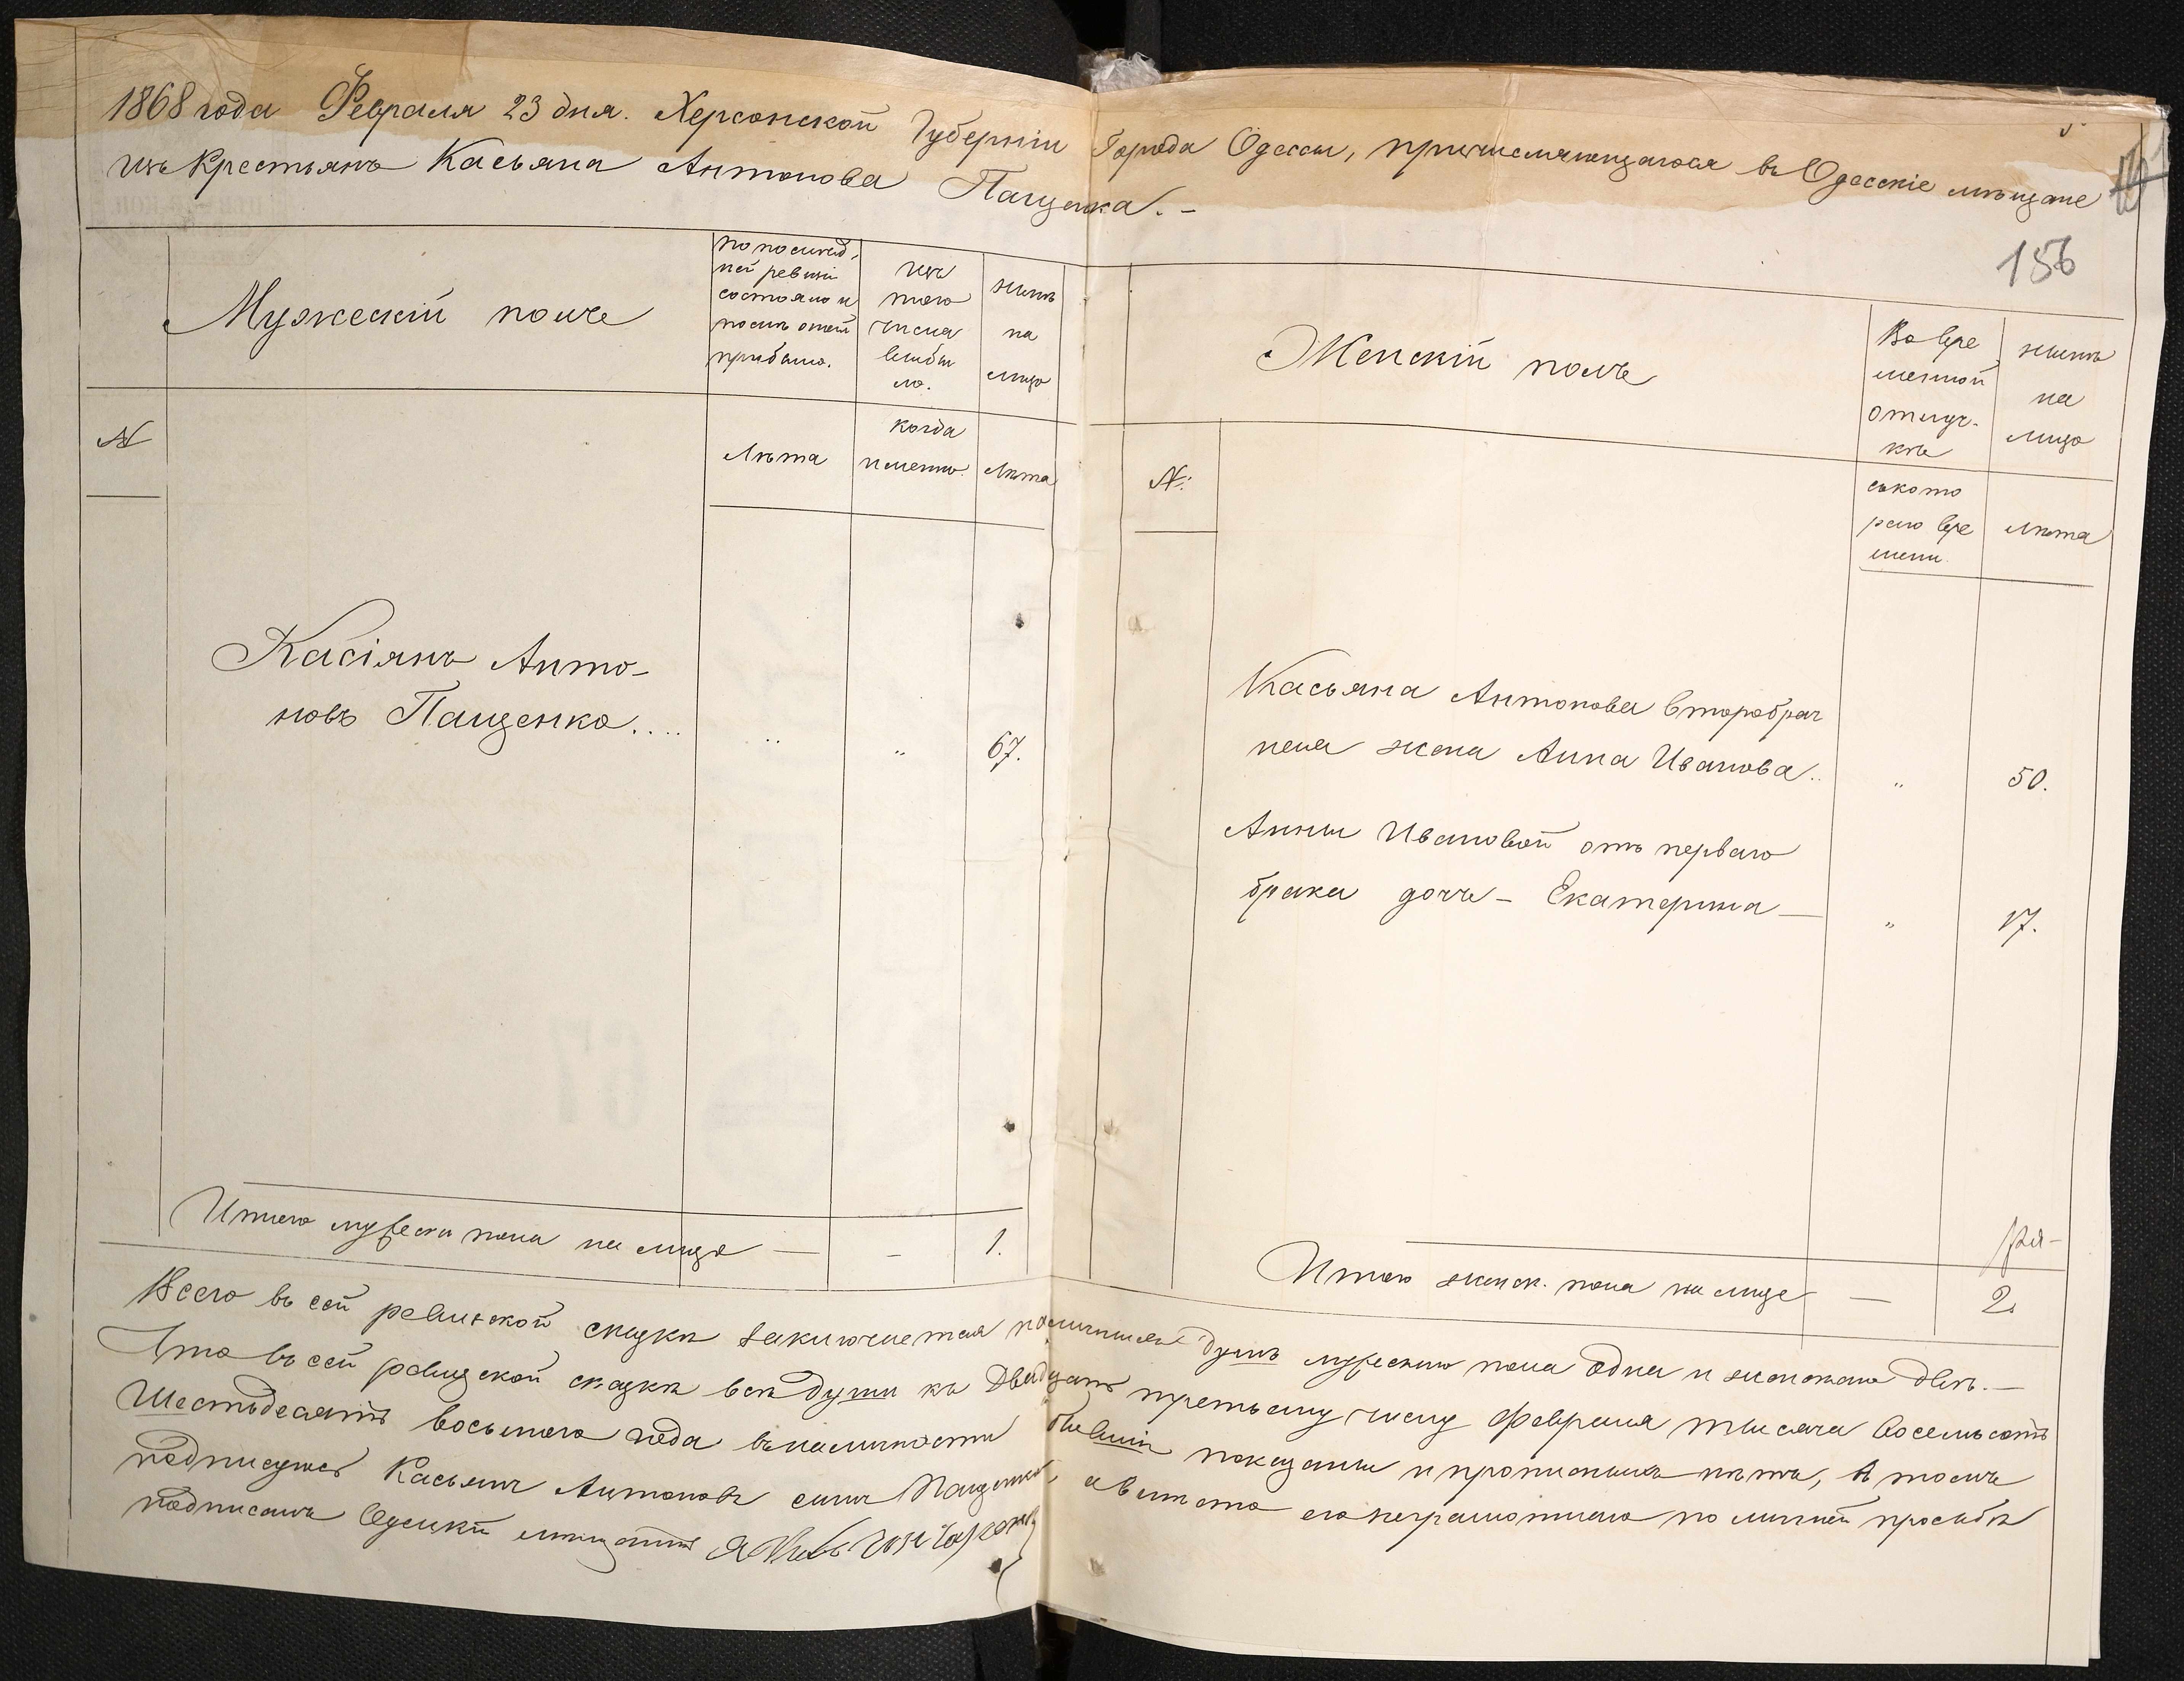 1868 года Февраля 23 дня. Херсонской Губерніи Города Одессы, причисляющагося въ Одесскіе мѣщане
изъ Крестьянъ Касьяна Антонова Пащенка. -
156
Мужескій полъ
по послѣд,
ней ревизіи
состояло и
послѣ оной
прибыло.
изъ
того
числа
выбы
ло.
нынѣ
на
лицо
N
Лѣта
когда
именно.
Лѣта
Касіянъ Анто-
новъ Пащенко....
..
"
67.
Итого мужеска пола на лицо — - 1.
Женскій полъ
Во вре
менной
отлуч-
кѣ
нынѣ
на
лицо
N:
съ кото
раго вре
мени.
лѣта
Касьяна Антонова второбрач
ная жена Анна Иванова.. " 50.
Анны Ивановой отъ перваго
брака дочь - Екатерина — " 17.
Итого женск. пола на лицо — 2.
Всего въ сей ревизской сказкѣ заключается наличныхъ душъ мужескаго пола одна и женскаго двѣ. —
Что въ сей ревизской сказкѣ всѣ души къ Двадцать третьему числу февраля тысяча восемьсотъ
Шестьдесятъ восьмого года въ наличности бывшія показаны и прописныхъ нѣтъ, въ томъ
подписуюсь Касьянъ Антоновъ сынъ Пащенко, а вмѣсто его неграмотнаго по личной просьбѣ
подписалъ Одесскій мѣщанинъ